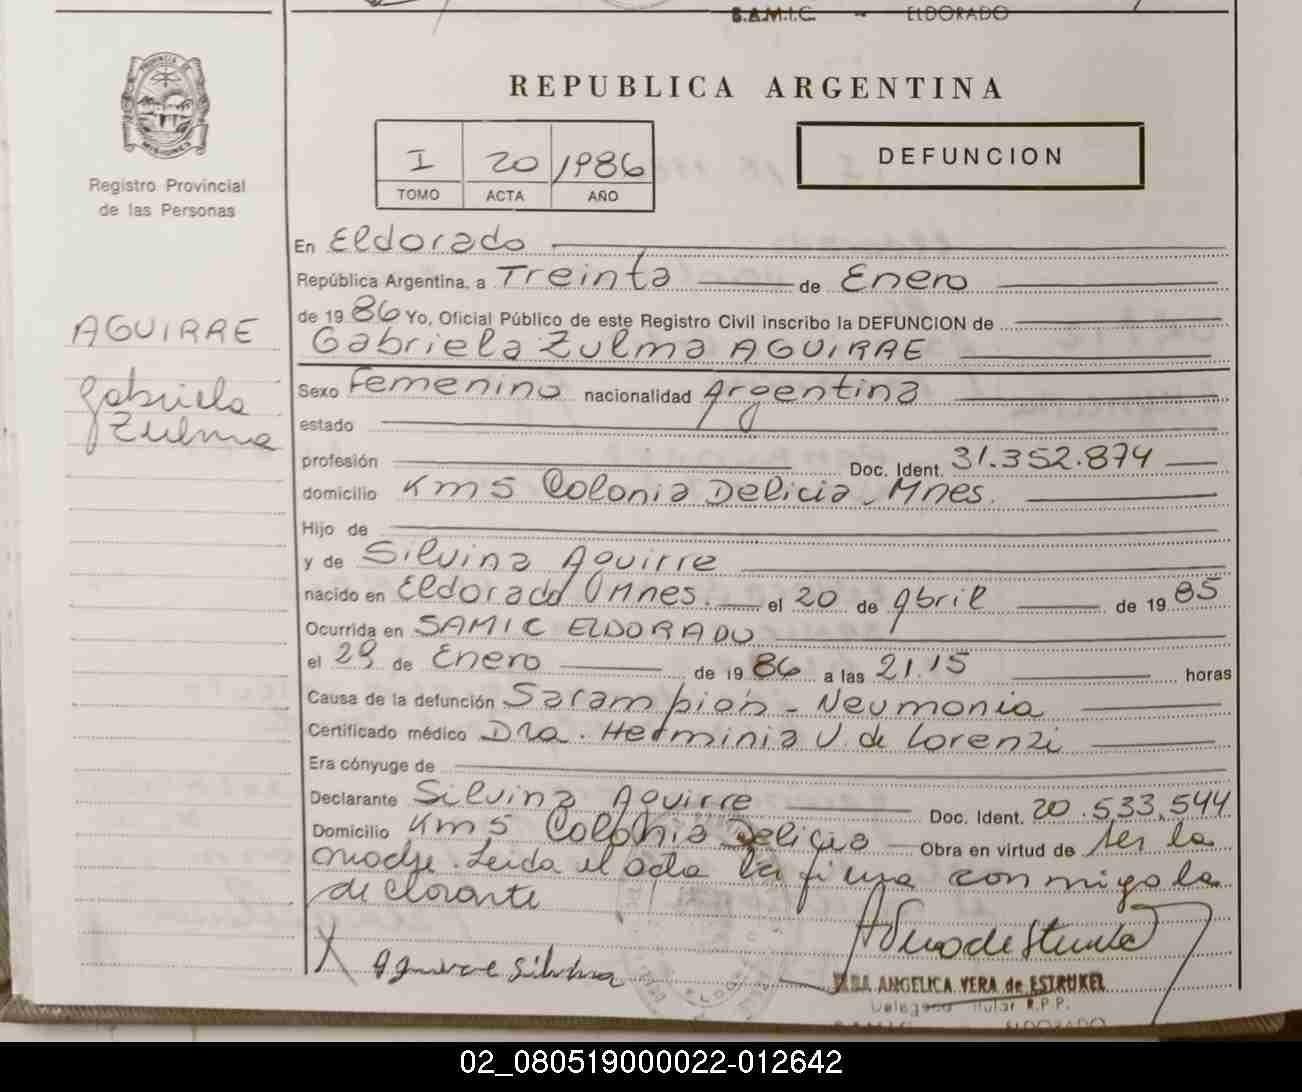 S.A.M.I.C. - ELDORADO
PROVINCIA DE
MISIONES
Registro Provincial
de las Personas
REPUBLICA ARGENTINA
I 20 1986
TOMO ACTA AÑO
DEFUNCION
AGUIRRE
Gabriela
Zulma
En Eldorado
República Argentina, a Treinta de Enero
de 1986 Yo, Oficial Público de este Registro Civil inscribo la DEFUNCION de
Gabriela Zulma AGUIRRE
Sexo Femenino nacionalidad Argentina
estado
profesión Doc. Ident. 31.352.874
domicilio Km 5 Colonia Delicia - Mnes.
Hijo de
y de Silvina Aguirre
nacido en Eldorado Mnes. el 20 de Abril de 1985
Ocurrida en SAMIC ELDORADO
el 29 de Enero de 1986 a las 21.15 horas
Causa de la defunción Sarampión - Neumonia
Certificado médico Dra. Herminia V. de Lorenzi
Era cónyuge de
Declarante Silvina Aguirre Doc. Ident. 20.533.544
Domicilio Km 5 Colonia Delicia Obra en virtud de ser la
madre. Leida el acta la firma conmigo la
declarante
Aguirre Silvina
ANGELICA VERA de ESTRUKEL
Delegada Titular R.P.P.
S.A.M.I.C. ELDORADO
02_080519000022-012642